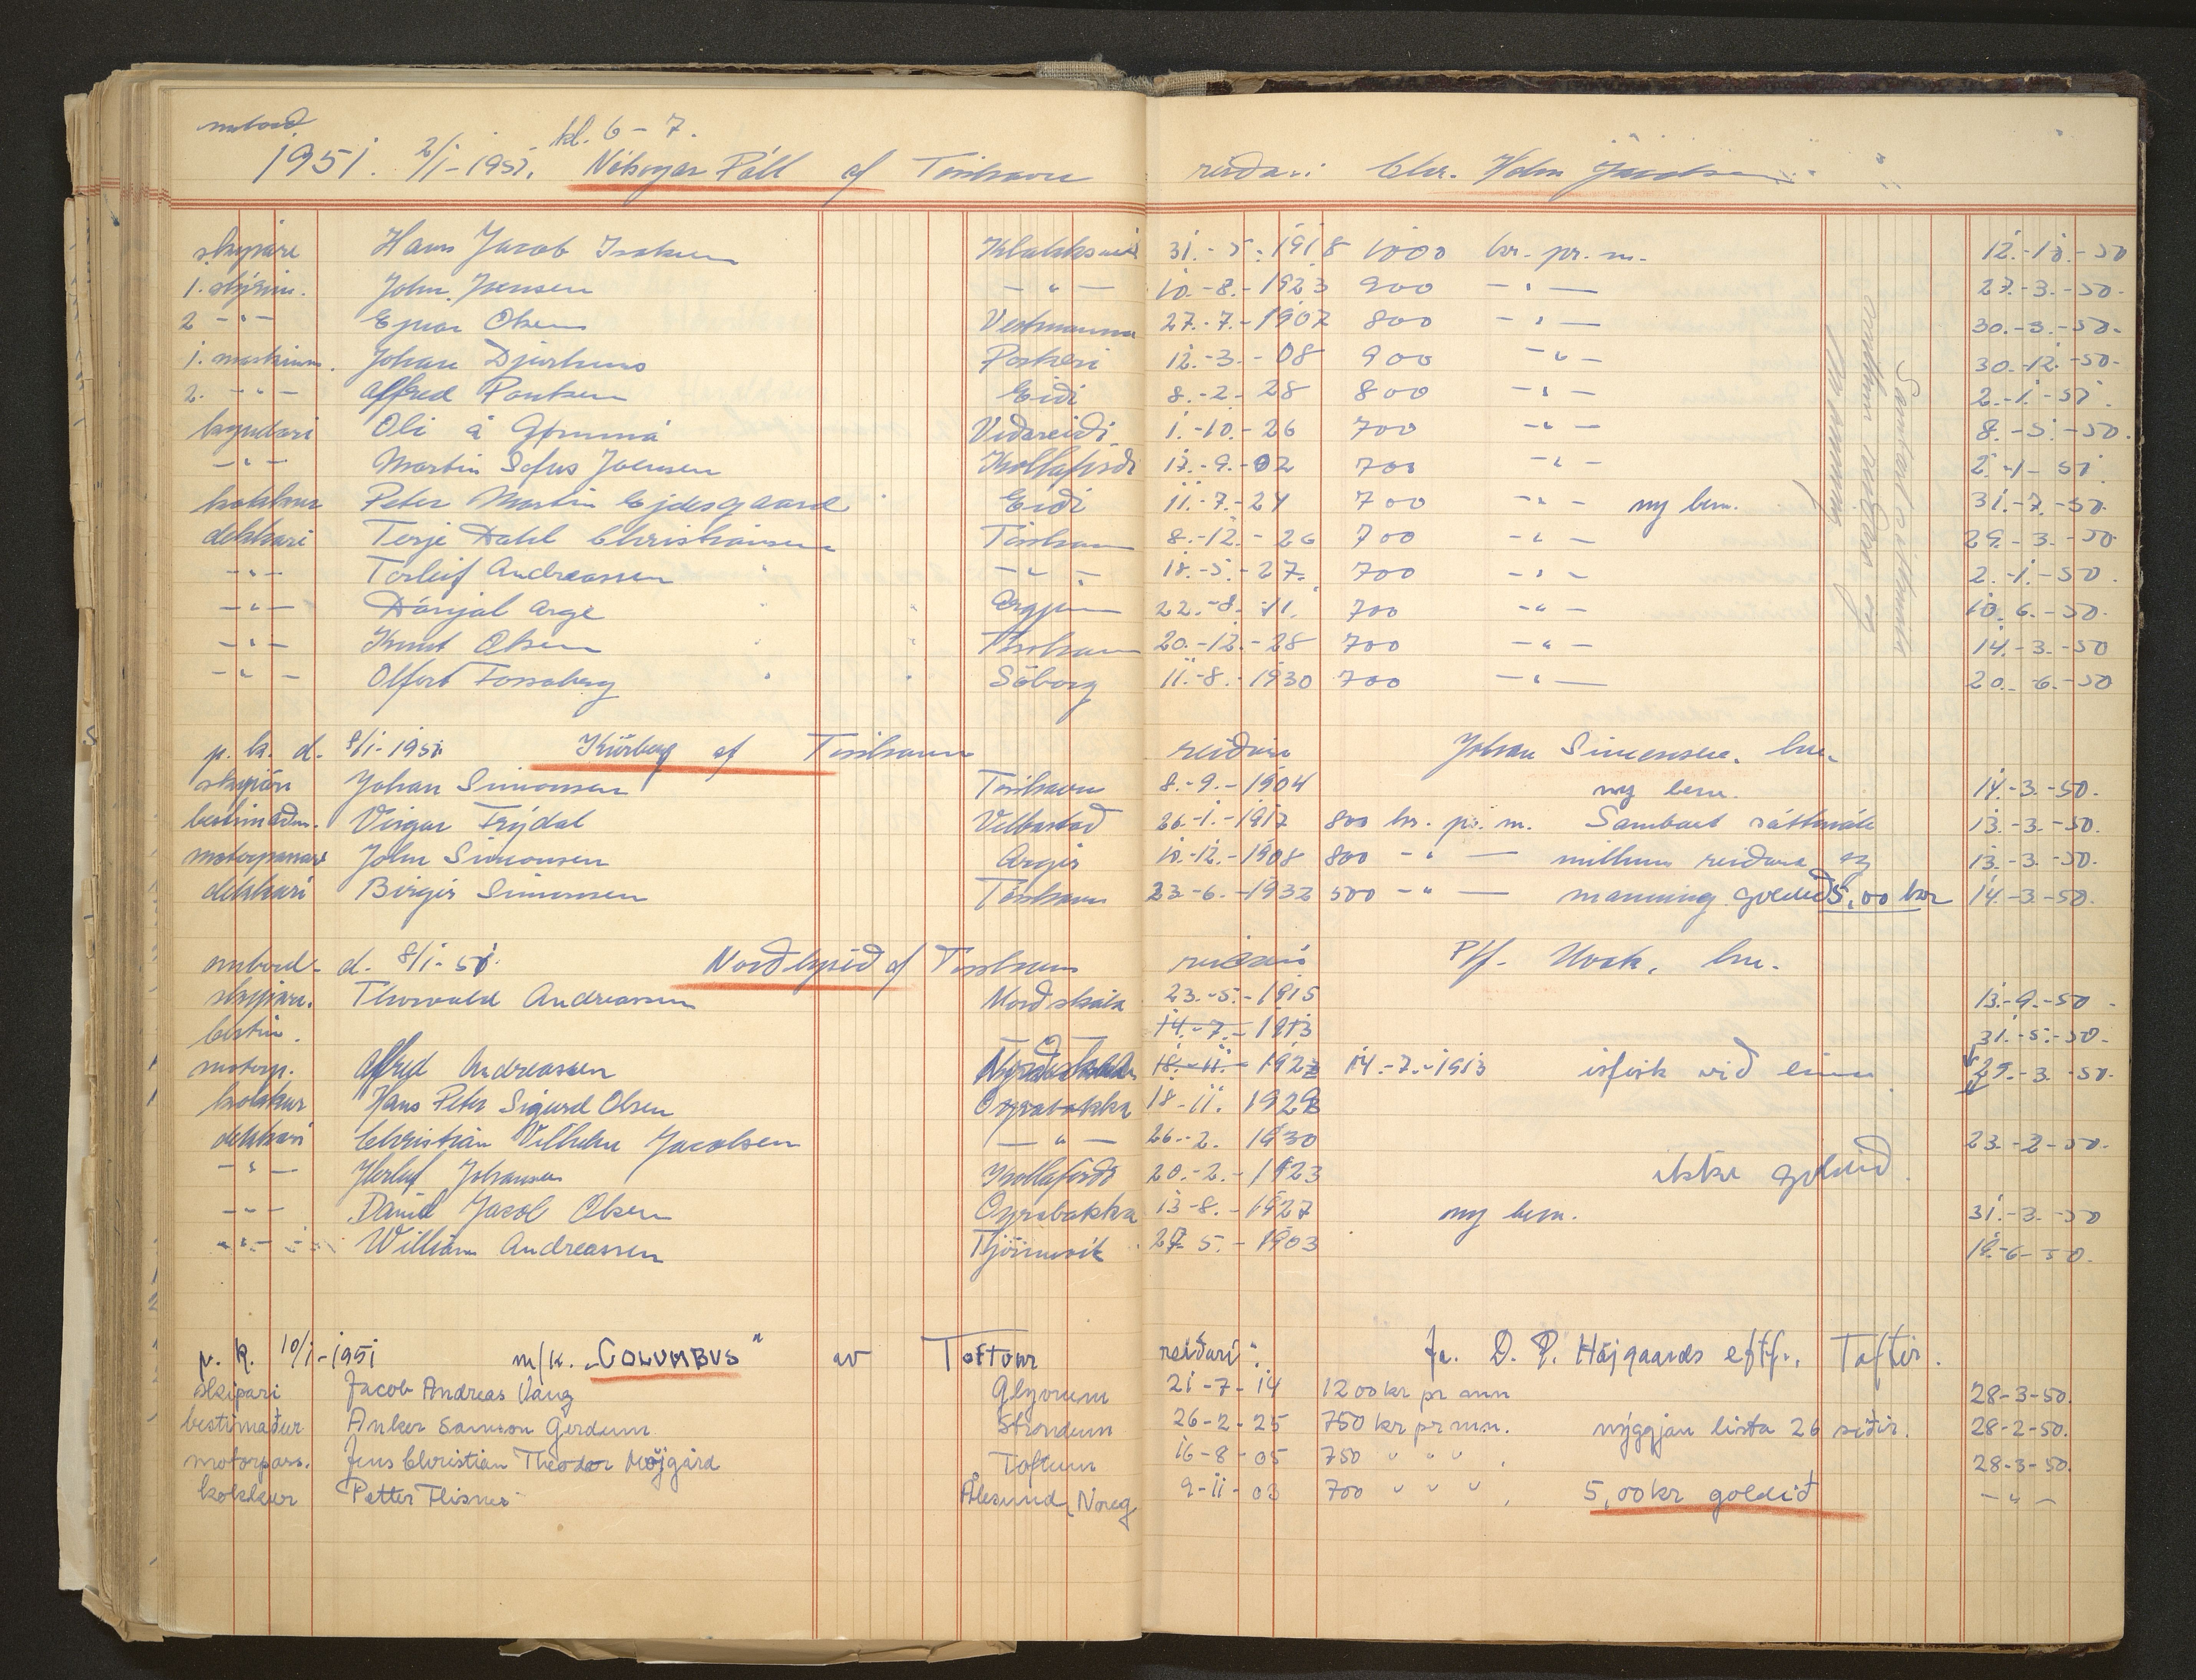 umboð
kl. 6 - 7.
1951. 2/1-1951. Nólsoyar Páll af Tórshavn reiðari Chr. Holm Jacobsen
skipari Hans Jacob Isaksen Klakksvík 31.-5.-1918 1000 kr. pr. m. 12.-12.-50
1. stýrim. John Joensen -"- 10.-8.-1923 900 -"- 27.-3.-50.
2 -"- Ejnar Olsen Vestmanna 27.-7.-1907 800 -"- 30.-3.-50.
1. maskinm. Johan Djurhuus Porkeri 12.-3.-08 900 -"- 30.-12.-50.
2. -"- Alfred Poulsen Eiði 8.-2-28 800 -"- 2.-1.-51.
kyndari Oli á Gørunná Viðareiði 1.-10.-26 700 -"- 8.-5.-50.
-"- Martin Sofus Joensen Kollafirði 13.-9.-02 700 -"- 2.-1-51.
kokkur Peter Martin Ejdesgaard Eiði 11.-7.-24 700 -"- ny bem. 31.-7.-50.
dekkari Terje Dahl Christiansen Tórshavn 8.-12.-26 700 -"- 29.-3.-50.
-"- Torleif Andreassen -"- 18.-5.-27. 700 -"- 2.-1.-50.
-"- Dánjal Arge Argjum 22.-8.-11. 700 -"- 10.6.-50.
-"- Knut Olsen Tórshavn 20.-12.-28 700 -"- 14.-3.-50
-"- Olfert Fossaberg Søborg 11.-8.-1930 700 -"- 20.-6.-50
Sambart sáttmála
millum reiðara og
manning
p. k. d. 8/1-1951 Kúrberg af Tórshavn reiðari Johan Simonsen. hu.
skipari Johan Simonsen Tórshavn 8.-9.-1904 ny bem. 14.-3.-50.
bestimaður. Virgar Trýdal Velbastað 26.-1.-1917 800 kr. pr. m. Sambart sáttmála 13.-3.-50.
motorpassari John Simonsen Argir 10.-12.-1908 800 -"- millum reiðara og 13.-3.-50.
dekkari Birgir Simonsen Tórshavn 23-6.-1932 500 -"- manning. goldið 5,00 kr 14.-3-50.
umboð- d. 8/1-51. Norðlýsið af Tórshavn reiðari P/f. Hvok, hu.
skipari. Thorvald Andreassen Norðskála 23.-5.-1915 13.-9.-50.
bestim. 14.-7.-1913 31.-5.-50.
motorp. Alfred Andreassen Norðskála 18.-11.-1927 14.-7.-1913 ísfisk við 29.-3.-50.
kokkur Hans Peter Sigurd Olsen Oyrabakka 18-11. 1928
dekkari Christian Vilhelm Jacobsen -"- 26.-2. 1930 23.-2-50.
-"- Herluf Johansen Kollafirði 20.-2.-1923 ikki goldið
-"- Daniel Jacob Olsen Oyrabakka 13-8.-1927 ny bem. 31.-3.-50
-"- William Andreassen Tjørnuvík 27-5.-1903 19.-6-50.
p. k. 10/1-1951 m/k. "COLUMBUS" av Toftum reiðari: Fa. D. P. Højgaards eftf., Toftir.
skipari Jacob Andreas Vang Glyvrum 21-7-14 1200 kr pr mn 28-3-50.
bestimaður Anker Samson Gerdum Strondum 26-2-25 750 kr pr mn. nýggjan lista 26 síðir. 28-2-50.
motorpass. Jens Christian Theodor Højgård Toftum 16-8-05 750 " " " , 28-3-50.
kokkur Petter Flisnes Ålesund, Noreg 9-11-03 700 " " " , 5,00 kr goldið -"-